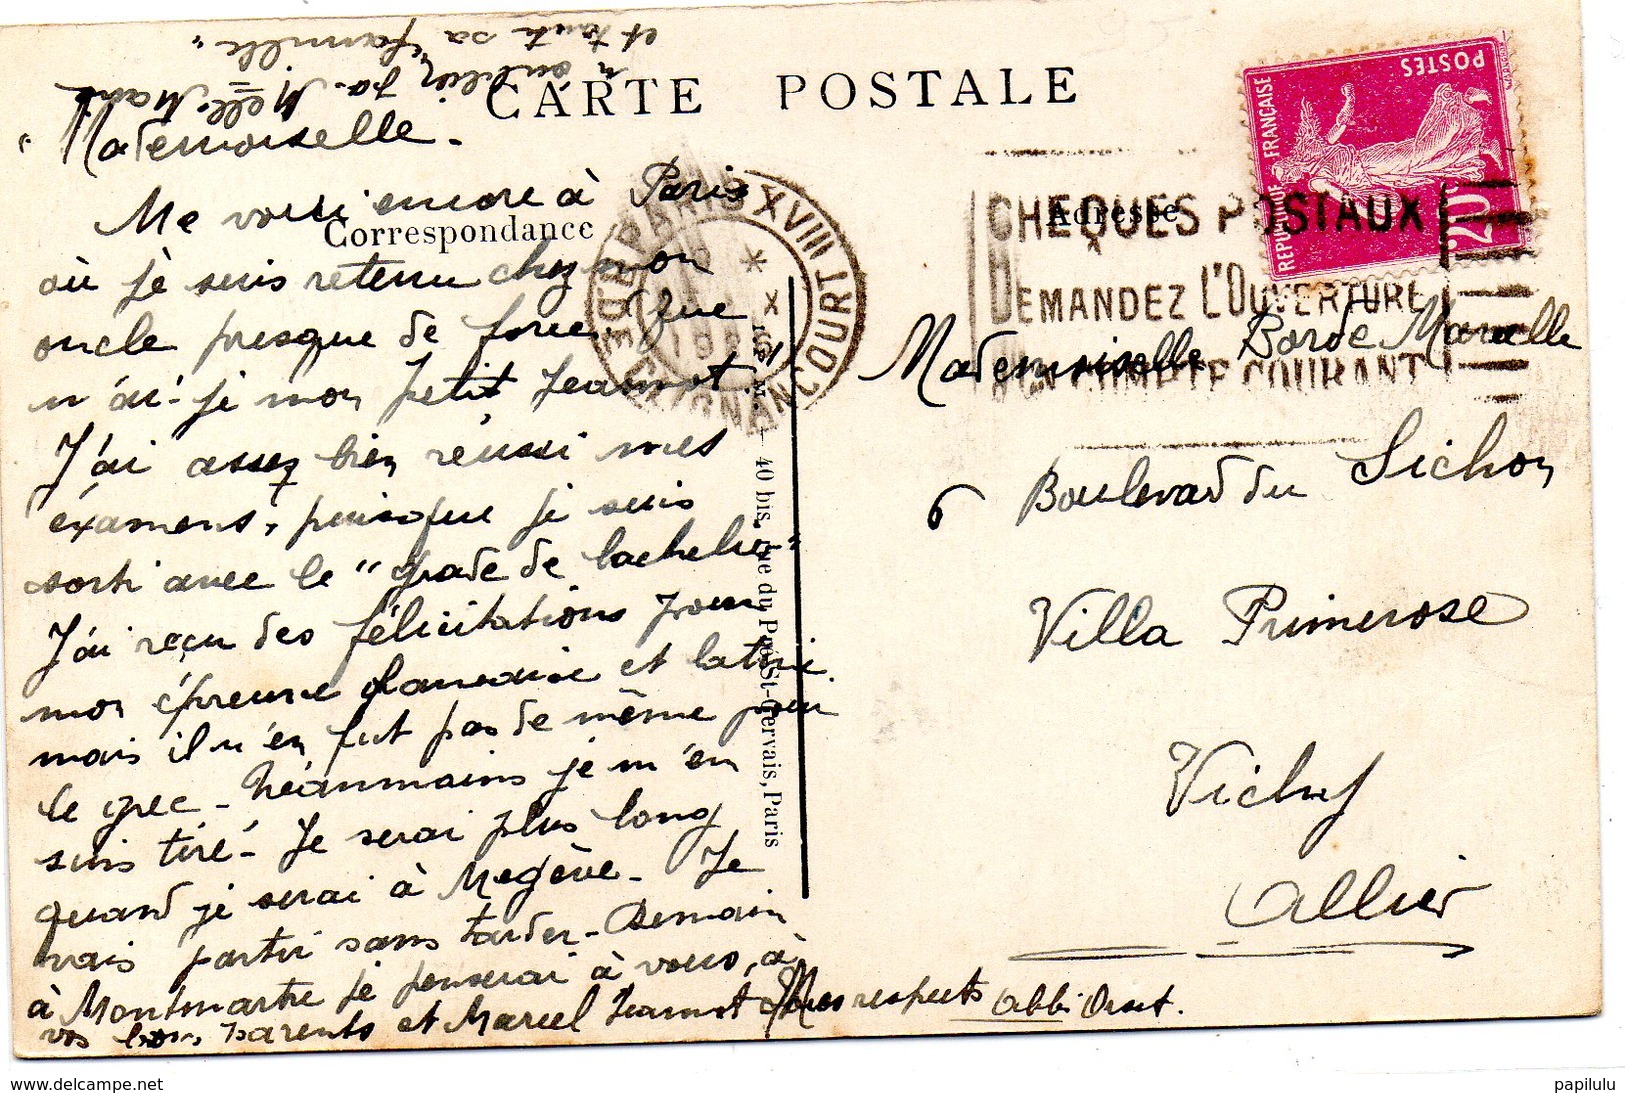 et toute sa "famille"
n'oublier pas Melle Mahé
CARTE POSTALE
Mademoiselle.
Me voici encore à Paris
Correspondance
où je suis retenu chez mon
oncle presque de force. Que
n'ai-je mon petit Jeannot
J'ai assez bien réussi mes
éxamens, puisque je suis
sorti avec le "grade de bachelier"
J'ai reçu des félicitations pour
mon épreuve française et latine
mais il n'en fut pas de même pour
le grec - Néanmains je m'en
suis tiré - Je serai plus long
quand je serai à Megève - Je
vais partir sans tarder - Demain
à Montmartre je penserai à vous, à
vos bons parents et Marcel Jeannot
Mes respects abbé
40 bis, rue du Pré-St-Gervais, Paris
PARIS XVIII
CLIGNANCOURT
CHEQUES POSTAUX
DEMANDEZ L'OUVERTURE
COMPTE COURANT
POSTES
REPUBLIQUE FRANÇAISE
20c
Adresse
Mademoiselle Borde Marcelle
6 Boulevard du Sichon
Villa Primerose
Vichy
Allier
www.delcampe.net
papilulu